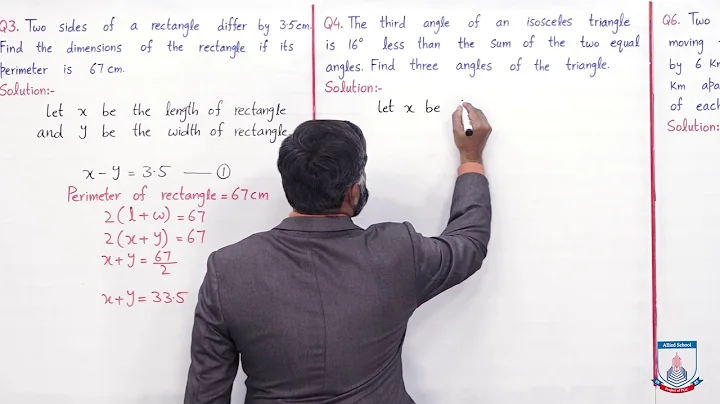 Q3. Two sides of a rectangle differ by 3.5cm.
Find the dimensions of the rectangle if its
perimeter is 67cm.
Solution:-
Let x be the length of rectangle
and y be the width of rectangle
x-y = 3.5 —— ①
Perimeter of rectangle = 67cm
2(l+w) = 67
2(x+y) = 67
x+y = 67/2
x+y = 33.5
Q4. The third angle of an isosceles triangle
is 16° less than the sum of the two equal
angles. Find three angles of the triangle.
Solution:-
Let x be
Q6. Two
moving
by 6 Km
Km apa
of each
Solution:
Allied School